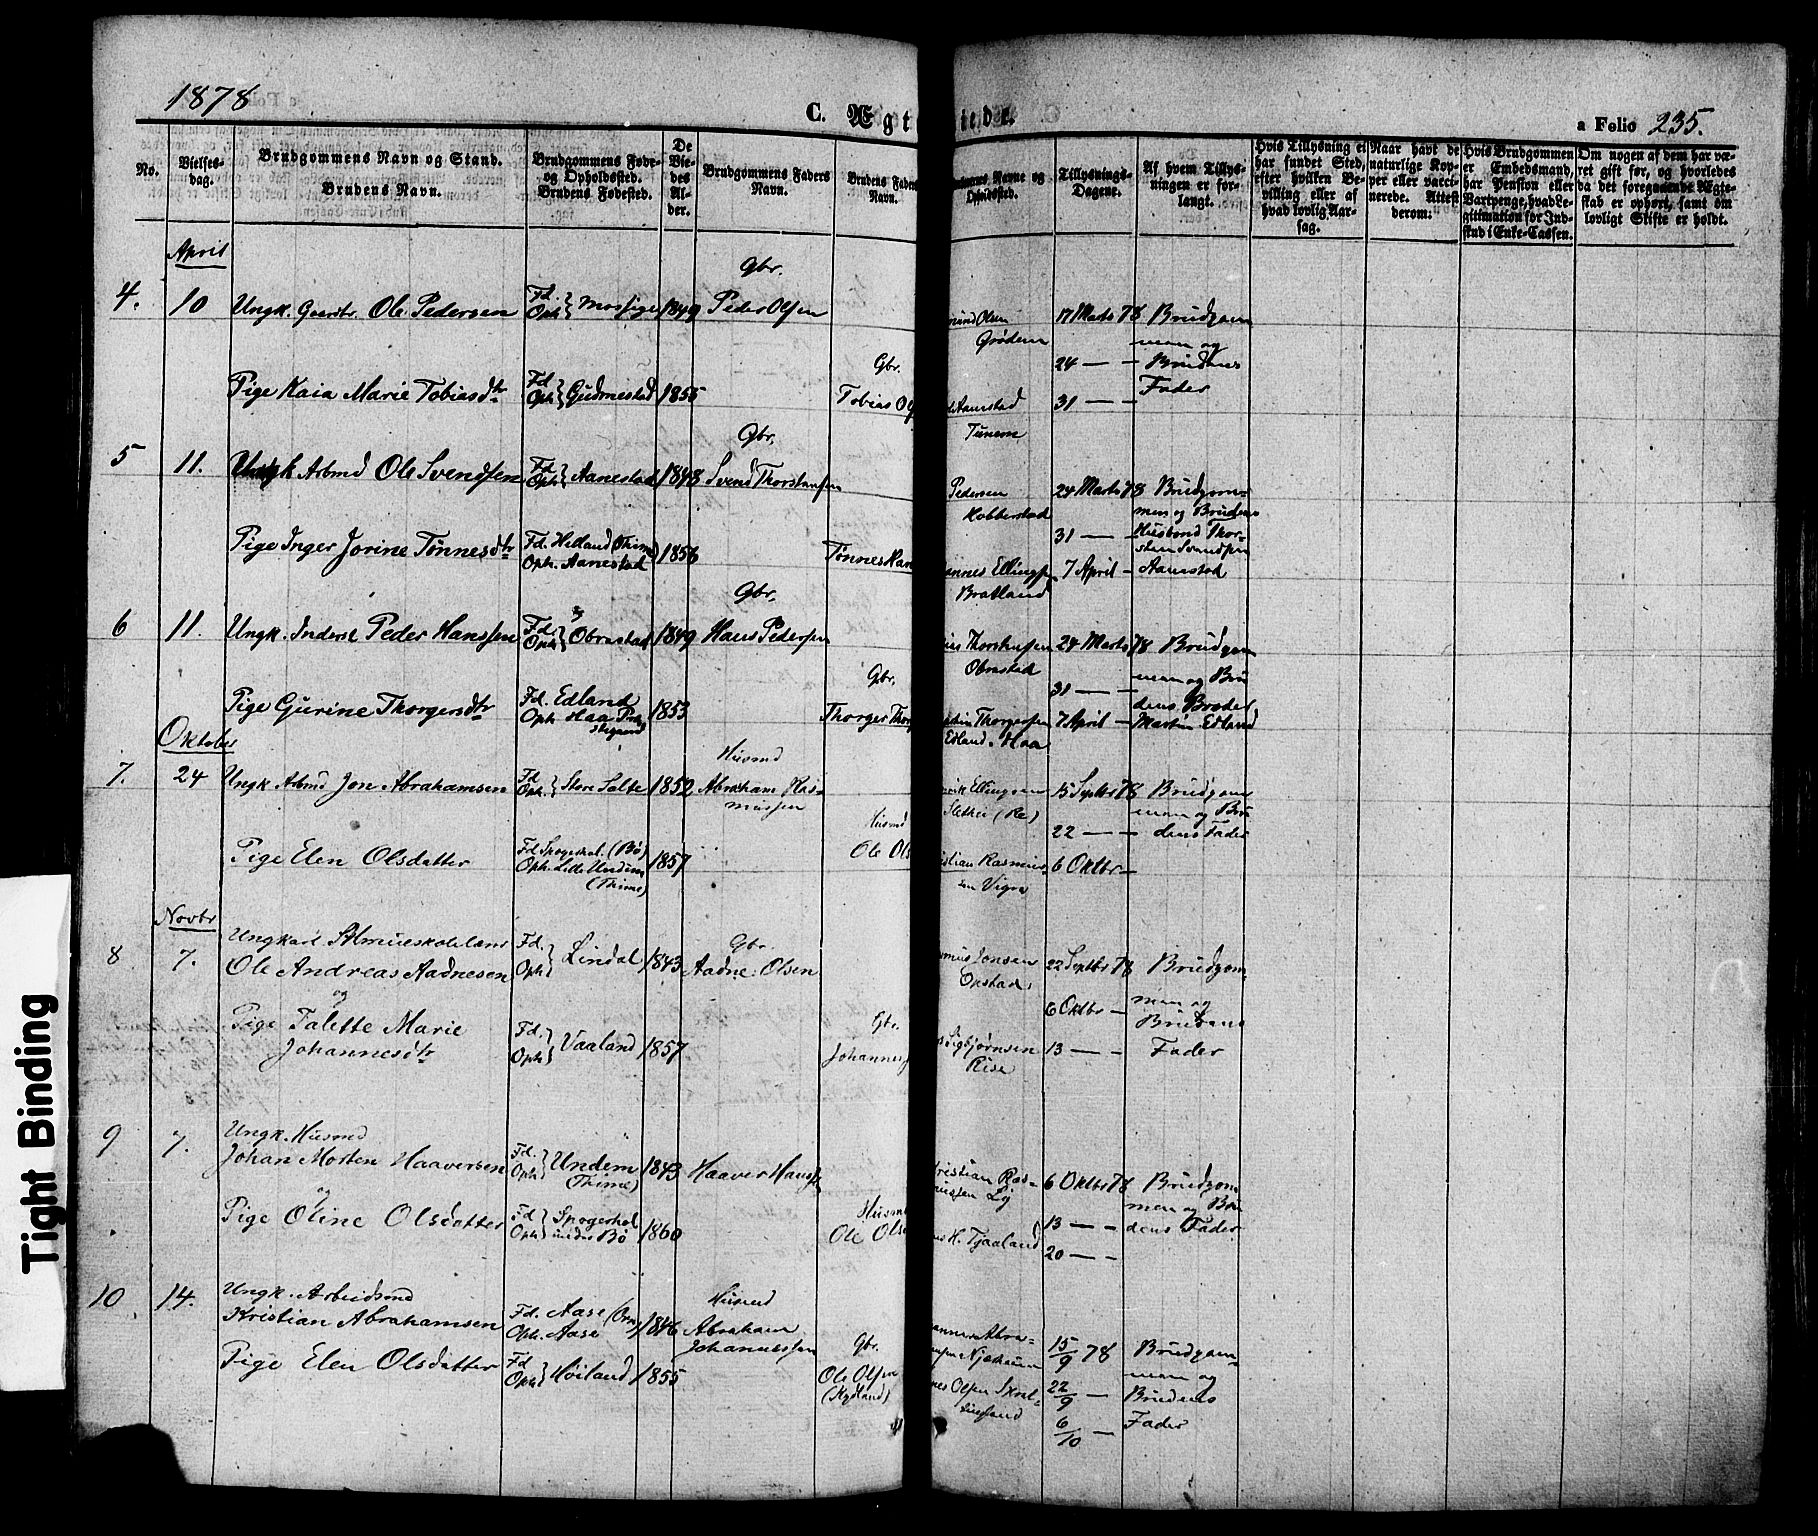 1878
C. Ægt iede.
a Folio 235.
No.
Vielses-
dag.
Brudgommens Navn og Stand.
Brudens Navn.
Brudgommens Føde-
og Opholdssted.
Brudens Fødested.
De
Vie-
des
Al-
der.
Brudgommens Faders
Navn.
Brudens Faders
Navn.
Navne og
Opholdssted.
Tillysnings-
Dagene.
Af hvem Tillys-
ningen er for-
langt.
Hvis Tillysning ei
har fundet Sted,
efter hvilken Be-
villing eller af
hvad lovlig Aar-
sag.
Naar havt de
naturlige Kop-
per eller vacci-
nerede. Attest
derom:
Hvis Brudgommen
er Embedsmand,
har Pension eller
Vartpenge, hvad Le-
gitimation for Ind-
skud i Enke-Cassen.
Om nogen af dem har væ-
ret gift før, og hvorledes
da det foregaaende Ægte-
skab er ophørt, samt om
lovligt Skifte er holdt.
April
4. 10 Ungk. Ole Pedersen Fd. Oph. Mossige 1849 Gbr. Peder Olsen
Olsen Grødem
17 Marts 78 24 — — 31 — —
Brudgom
men og
Brudens
Fader
Pige Kaia Marie Tobiasdtr Fd. Oph. Gudmestad 1855 Gbr. Tobias Ol
Tunem
5 11. Ungk Arbmd Ole Svendsen Fd. Oph. Aanestad 1848 Gbr. Svend Thorstensen
Pedersen
24 Marts 78 31 — — 7 April —
Brudgom-
men og Brudens
Husbond Thor-
sten Svendsen
Aanestad
Pige Inger Jorine Tønnesdtr Fd. Helland (Thime) Oph. Aanestad 1856 Tønnes Han
annes Ellingsen
Bratland
6 11. Ungk. Inderst Peder Hanssen Fd. Oph. Obrestad 1849 Gbr. Hans Pedersen
Obrestad
24 Marts 78 31 — — 7 April —
Brudgom
men og Bru
dens Broder
Martin Edland
Pige Gurine Thorgersdtr Fd. Edland Oph. Haa 1853 Gbr. Thorger Thor
Thorgersen
Edland. Haa
Oktober
7. 24 Ungk Arbmd Jon Abrahamsen Fd. Oph. Store Salte 1852 Husmd Abraham Ras-
mussen
Ellingsen
(Re)
15 Septbr 78 22 — — 6 Oktbr —
Brudgom
men og Bru
dens Fader
Pige Elen Olsdatter Fd. (Bø) Oph. Lille Undem (Thime) 1857 Husmd Ole Ols
stian Rasmus-
sen Vigre
Novbr
8 7. Ungkarl
Ole Andreas Aadnesen Fd. Oph. Lindal 1843 Gbr. Aadne Olsen
smus Jonsen
Opstad
22 Septbr 78 6 Oktbr — 13 — —
Brudgom
men og
Brudens
Fader
og
Pige Talette Marie
Johannesdtr Fd. Oph. Vaaland 1857 Gbr. Johannes
Sigbjørnsen
Rise
9 7. Ungk. Husmd
Johan Morten Haaversen Fd. Oph. Undem (Thime) 1843 Haaver Hanssen
ristian Ras-
6 Oktbr 78 13 — — 20 — —
Brudgom
men og Bru
dens Fader
og
Pige Oline Olsdatter Fd. Oph. Spogerhol under Bø 1860 Husmd Ole Ols
H. Tjaaland
10 14. Ungk. Arbeidsmd
Kristian Abrahamsen Fd. Aase Oph. Aase 1846 Husmd Abraham
Johannessen
15/9 78 22/9 — 6/10 —
Brudgom-
men og
Brudens
Fader
Pige Elen Olsdatter Fd Oph. Høiland 1855 Gbr. Ole Olsen
Olsen
Tight Binding